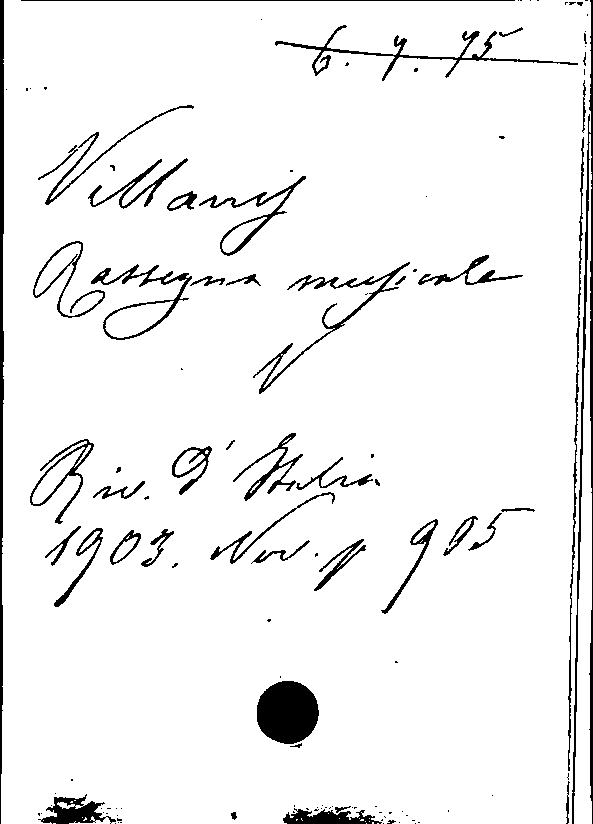 6. 7. 75
Villanis
Rassegna musicale
V
Riv. D'Italia
1903. Nov. p 905